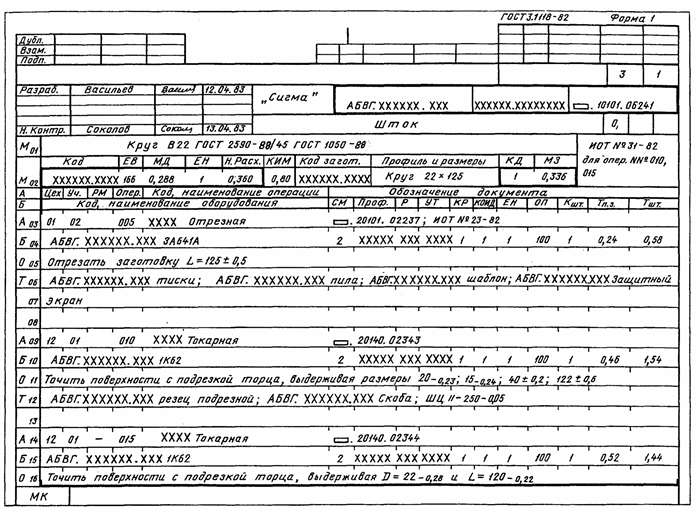 ГОСТ 3.1118-82 Форма 1
Дубл.
Взам.
Подп.
3 1
Разраб. Васильев 12.04.83
„Сигма" АБВГ.XXXXXX.XXX XXXXXX.XXXXXXXX 10101.06241
Н. Контр. Соколов 13.04.83 Шток 0,
М 01 Круг В22 ГОСТ 2590-88/45 ГОСТ 1050-88 ИОТ №31-82 для опер. №№010, 015
Код ЕВ МД ЕН Н.Расх. КИМ Код загот. Профиль и размеры КД МЗ
М 02 XXXXXX.XXXX 166 0,288 1 0,360 0,80 XXXXXX.XXXX Круг 22×125 1 0,336
А Цех Уч. РМ Опер. Код, наименование операции Обозначение документа
Б Код, наименование оборудования СМ Проф. Р УТ КР КОИД ЕН ОП Кшт. Тп.з. Тшт.
А 03 01 02 005 XXXX Отрезная 20101.02237; ИОТ №23-82
Б 04 АБВГ.XXXXXX.XXX 3А641А 2 XXXXX XXX XXXX 1 1 1 100 1 0,24 0,58
О 05 Отрезать заготовку L=125±0,5
Т 06 АБВГ.XXXXXX.XXX тиски; АБВГ.XXXXXX.XXX пила; АБВГ.XXXXXX.XXX шаблон; АБВГ.XXXXXX.XXX Защитный
07 экран
08
А 09 12 01 010 XXXX Токарная 20140.02343
Б 10 АБВГ.XXXXXX.XXX 1К62 2 XXXXX XXX XXXX 1 1 1 100 1 0,46 1,54
О 11 Точить поверхности с подрезкой торца, выдерживая размеры 20-0,23; 15-0,24; 40±0,2; 122±0,6
Т 12 АБВГ.XXXXXX.XXX резец подрезной; АБВГ.XXXXXX.XXX Скоба; ШЦ II-250-0,05
13
А 14 12 01 – 015 XXXX Токарная 20140.02344
Б 15 АБВГ.XXXXXX.XXX 1К62 2 XXXXX XXX XXXX 1 1 1 100 1 0,52 1,44
О 16 Точить поверхности с подрезкой торца, выдерживая D=22-0,28 и L=120-0,22
МК